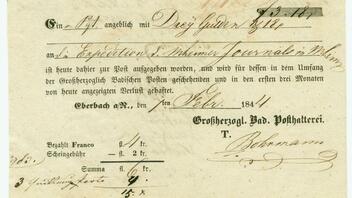 f 3. 18 x
Ein Pgt angeblich mit Drey Gulden 18 x
an die Expedition d. Mheimer Journals in Mheim
ist heute dahier zur Post aufgegeben worden, und wird für dessen in dem Umfang
der Großherzoglich Badischen Posten geschehenden und in den ersten drei Monaten
von heute angezeigten Verlust gehaftet.
Eberbach a/N., den 7 Febr. 1844
Großherzogl. Bad. Posthalterei.
T. Bohrmann
Bezahlt Franco 4 kr.
Scheingebühr — 2 kr.
Summa 6 kr.
3 9.
15. x